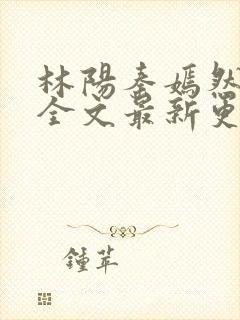 林陽秦嫣然
全文最新更
鍾苹